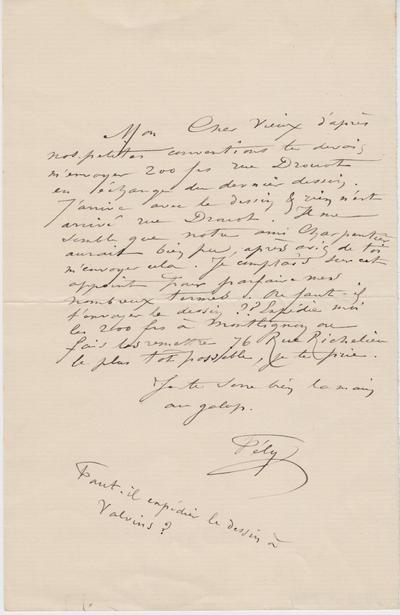 Mon Cher Vieux d'après
nos petites conventions tu devais
m'envoyer 200 frs rue Drouot
en échange du dernier dessin.
J'arrive avec le dessin & rien n'est
arrivé rue Drouot. Il me
semble que notre ami Charpentier
aurait bien pu, après avis de toi
m'envoyer cela. Je comptais sur cet
appoint pour parfaire mes
nombreux termes. Où faut-il
t'envoyer le dessin ?? Expédie moi
les 200 frs à Montlignon ou
fais les remettre 76 Rue Richelieu
le plus tôt possible, je te prie.
Je te serre bien la main
au galop.
Faut-il expédier le dessin à
Valvins ?